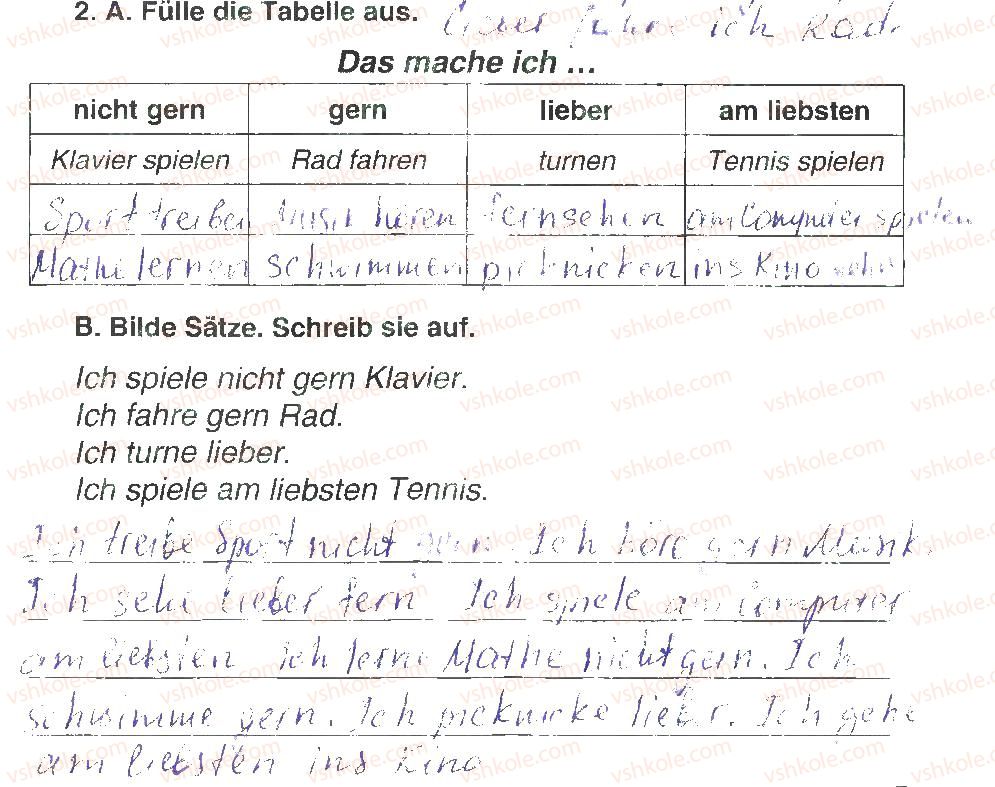 2. A. Fülle die Tabelle aus. Lieber fahre ich Rad.
Das mache ich ...
nicht gern gern lieber am liebsten
Klavier spielen Rad fahren turnen Tennis spielen
Sport treiben Musik hören fernsehen am Computer spielen
Mathe lernen schwimmen picknicken ins Kino gehn
B. Bilde Sätze. Schreib sie auf.
Ich spiele nicht gern Klavier.
Ich fahre gern Rad.
Ich turne lieber.
Ich spiele am liebsten Tennis.
Ich treibe Sport nicht gern. Ich höre gern Musik.
Ich sehe lieber fern Ich spiele am Computer
am liebsten Ich lerne Mathe nicht gern. Ich
schwimme gern. Ich picknicke lieber. Ich gehe
am liebsten ins Kino
vshkole.com